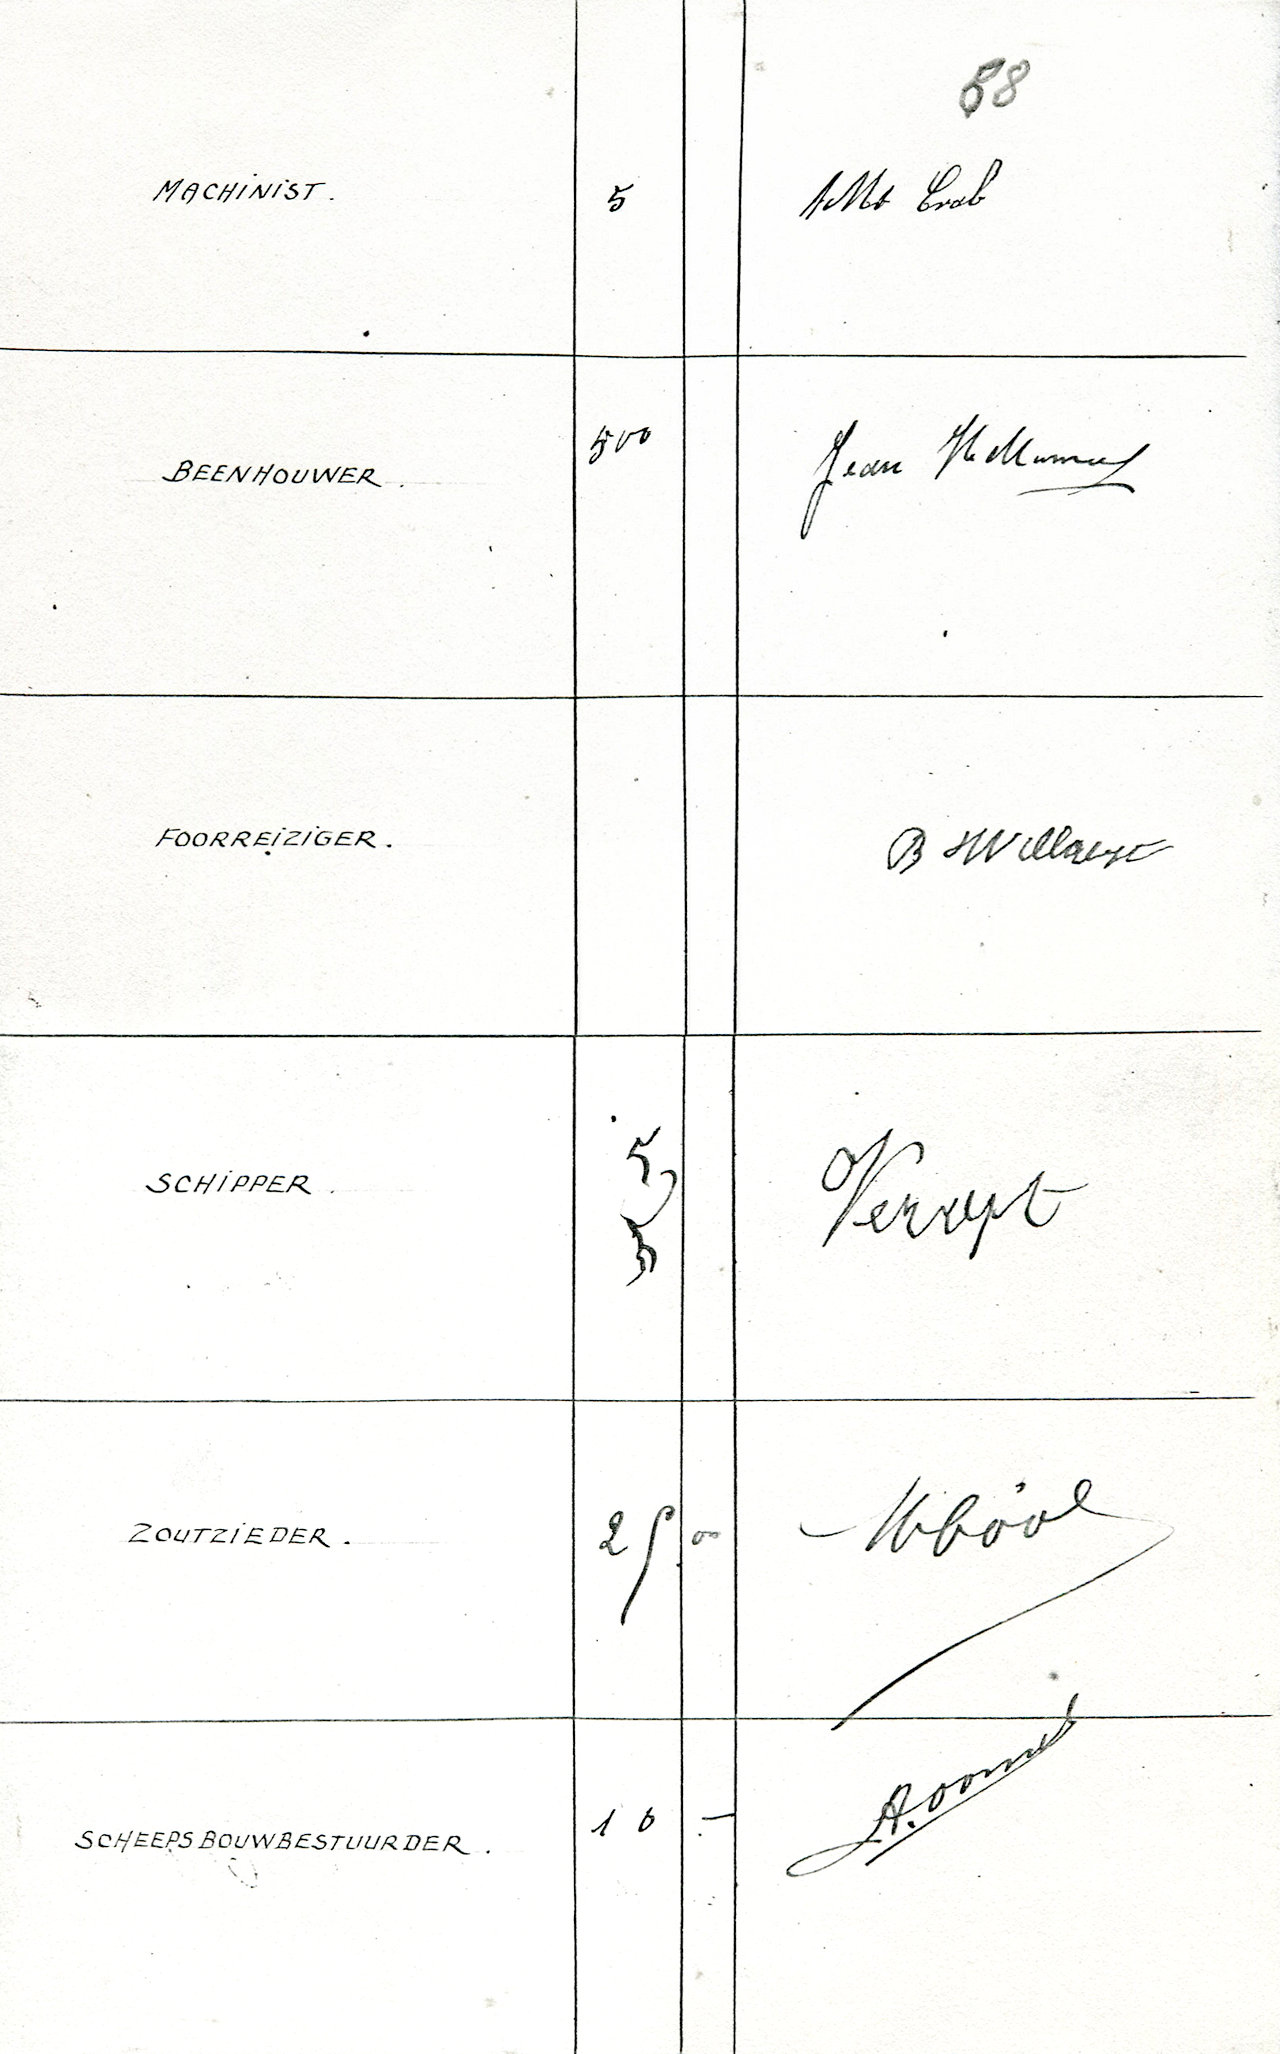 58
MACHINIST. 5 Crab
BEENHOUWER. 500 Jean
FOORREIZIGER. B Willaert
SCHIPPER. 5
5
ZOUTZIEDER. 25 00
SCHEEPSBOUWBESTUURDER. 10 —